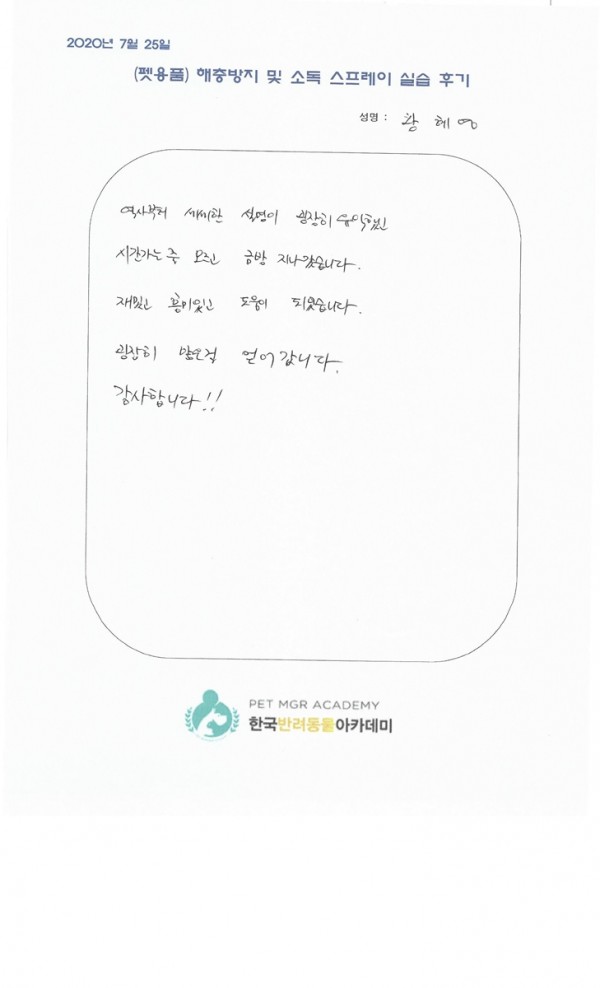 2020년 7월 25일
(펫용품) 해충방지 및 소독 스프레이 실습 후기
성명 : 황혜영
역사부터 세세한 설명이 굉장히 유익했고
시간가는 줄 모르고 금방 지나갔습니다.
재밌고 흥미있고 도움이 되었습니다.
굉장히 많은걸 얻어갑니다.
감사합니다!!
PET MGR ACADEMY
한국반려동물아카데미